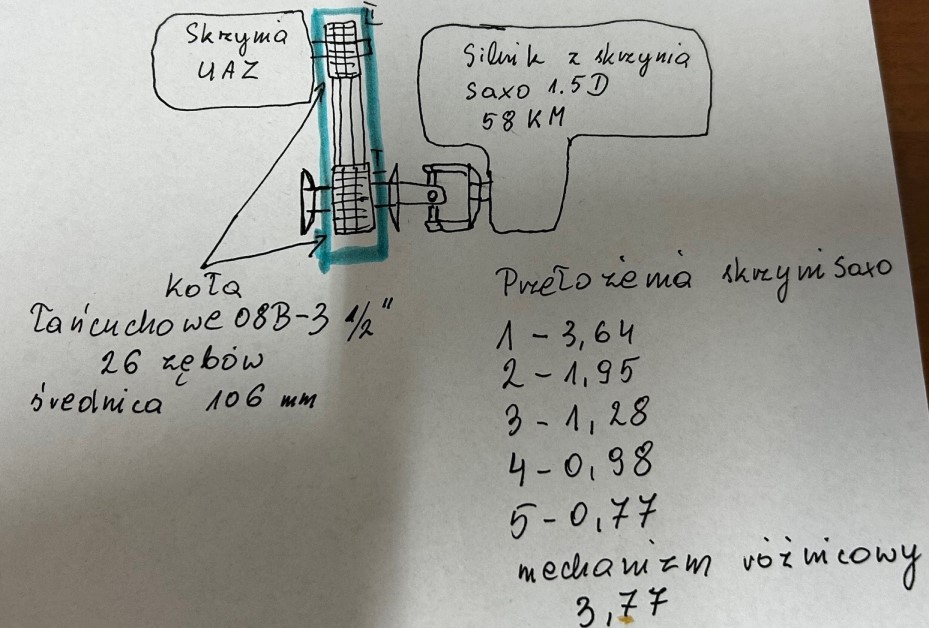 Skrzynia
UAZ
II
Silnik z skrzynią
saxo 1.5D
58 KM
I
Koła
łańcuchowe 08B-3 1/2"
26 zębów
średnica 106 mm
Przełożenia skrzyni Saxo
1 - 3,64
2 - 1,95
3 - 1,28
4 - 0,98
5 - 0,77
mechanizm różnicowy
3,77